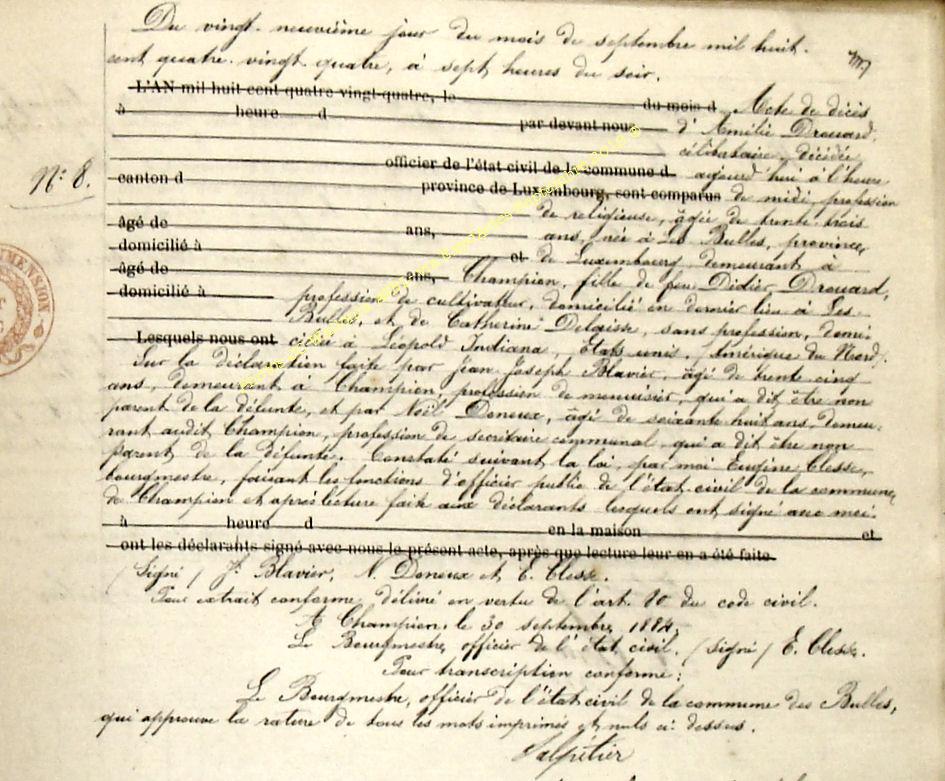 Du vingt-neuvième jour du mois de septembre mil huit-
cent quatre-vingt-quatre, à sept heures du soir.
L'AN mil huit cent quatre vingt-quatre, le du mois d Acte de décès
à heure d par devant nous d'Amélie Drouard,
célibataire, décédée
officier de l'état civil de la commune d aujourd'hui à l'heure
N° 8. canton d province de Luxembourg, sont comparus de midi, profession
de religieuse, âgée de trente-trois
âgé de ans, ans, née à Les Bulles, province
domicilié à et de Luxembourg, demeurant à
âgé de ans, Champion, fille de feu Didier Drouard,
domicilié à profession de cultivateur, domicilié en dernier lieu à Les
Bulles, et de Catherine Delaisse, sans profession, domi-
Lesquels nous ont ciliée à Léopold Indiana, Etats unis, Amérique du Nord.
Sur la déclaration faite par Jean Joseph Blavier, âgé de trente-cinq
ans, demeurant à Champion, profession de menuisier, qui a dit être non
parent de la défunte, et par Noël Deneux, âgé de soixante huit ans, demeu-
rant audit Champion, profession de secrétaire communal, qui a dit être non
parent de la défunte. Constaté suivant la loi, par moi Eugène Clesse,
bourgmestre, faisant les fonctions d'officier public de l'état civil de la commune
de Champion et après lecture faite aux déclarants lesquels ont signé avec moi.
à heure d en la maison et
ont les déclarants signé avec nous le présent acte, après que lecture leur en a été faite.
(Signé) J. Blavier, N. Deneux et E. Clesse.
Pour extrait conforme délivré en vertu de l'art. 80 du code civil.
A Champion, le 30 septembre 1884.
Le Bourgmestre, officier de l'état civil. (Signé) E. Clesse.
Pour transcription conforme:
Le Bourgmestre, officier de l'état civil de la commune des Bulles,
qui approuve la rature de tous les mots imprimés et nuls ci-dessus.
Salpétier